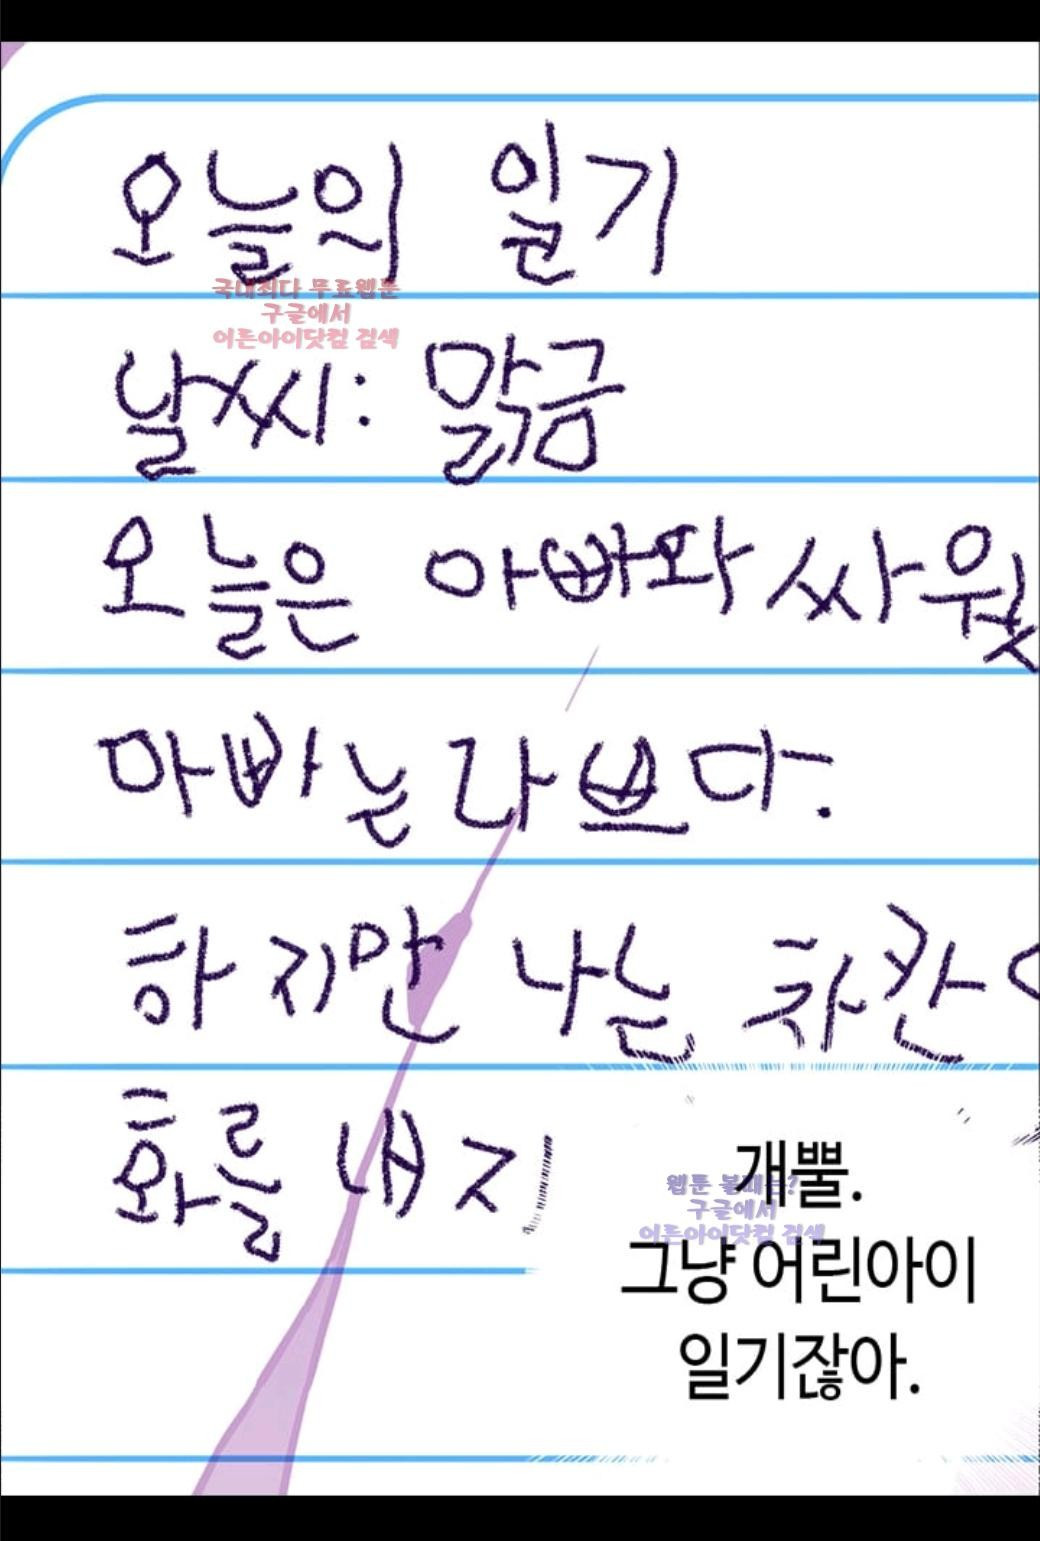 오늘의 일기
국내최다 무료웹툰
구글에서
어른아이닷컴 검색
날씨: 맑금
오늘은 아빠와 싸웠
아빠는 나쁘다.
하지만 나는 차칸
화를 내지
개뿔.
웹툰 볼때는?
구글에서
어른아이닷컴 검색
그냥 어린아이
일기잖아.